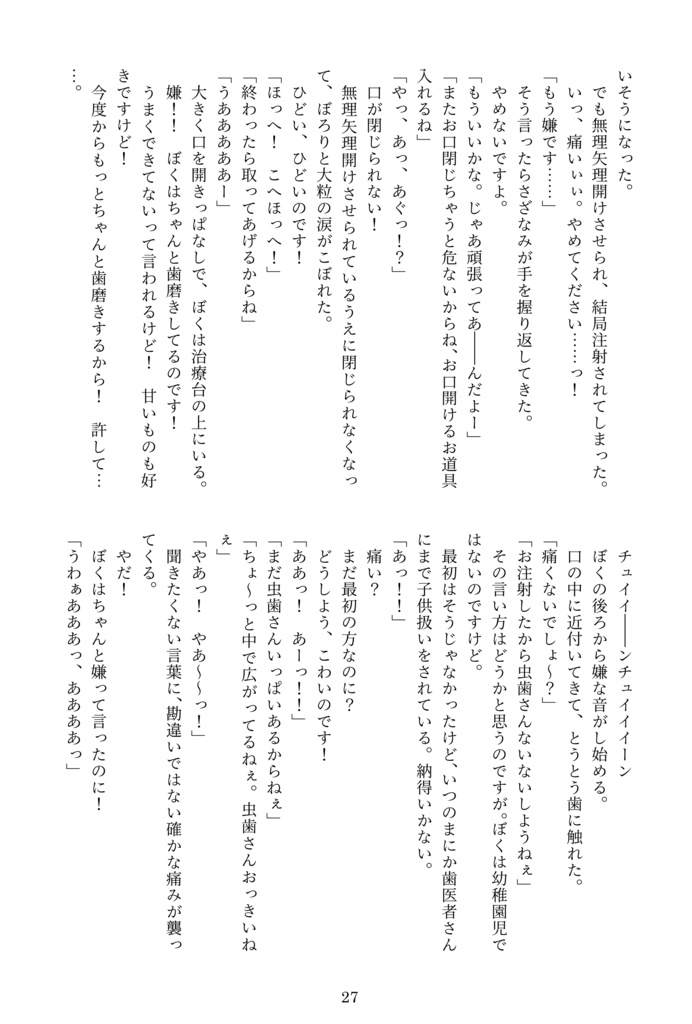 いそうになった。
　でも無理矢理開けさせられ、結局注射されてしまった。
　いっ、痛いぃぃ。やめてください……っ！
「もう嫌です……」
　そう言ったらさざなみが手を握り返してきた。
　やめないですよ。
「もういいかな。じゃあ頑張ってあ――んだよー」
「またお口閉じちゃうと危ないからね、お口開けるお道具
入れるね」
「やっ、あっ、あぐっ！？」
　口が閉じられない！
　無理矢理開けさせられているうえに閉じられなくなっ
て、ぼろりと大粒の涙がこぼれた。
　ひどい、ひどいのです！
「ほっへ！　こへほっへ！」
「終わったら取ってあげるからね」
「うああああああー」
　大きく口を開きっぱなしで、ぼくは治療台の上にいる。
　嫌！！　ぼくはちゃんと歯磨きしてるのです！
　うまくできてないって言われるけど！　甘いものも好
きですけど！
　今度からもっとちゃんと歯磨きするから！　許して…
…。
　チュイイ――ンチュイイイイーン
　ぼくの後ろから嫌な音がし始める。
　口の中に近付いてきて、とうとう歯に触れた。
「痛くないでしょ～？」
「お注射したから虫歯さんないないしようねぇ」
　その言い方はどうかと思うのですが。ぼくは幼稚園児で
はないのですけど。
　最初はそうじゃなかったけど、いつのまにか歯医者さん
にまで子供扱いをされている。納得いかない。
「あっ！！」
　痛い？
　まだ最初の方なのに？
　どうしよう、こわいのです！
「ああっ！　あーっ！！」
「まだ虫歯さんいっぱいあるからねぇ」
「ちょ～っと中で広がってるねぇ。虫歯さんおっきいね
ぇ」
「やあっ！　やあ～～っ！」
　聞きたくない言葉に、勘違いではない確かな痛みが襲っ
てくる。
　やだ！
　ぼくはちゃんと嫌って言ったのに！
「うわぁあああっ、ああああっ」
27